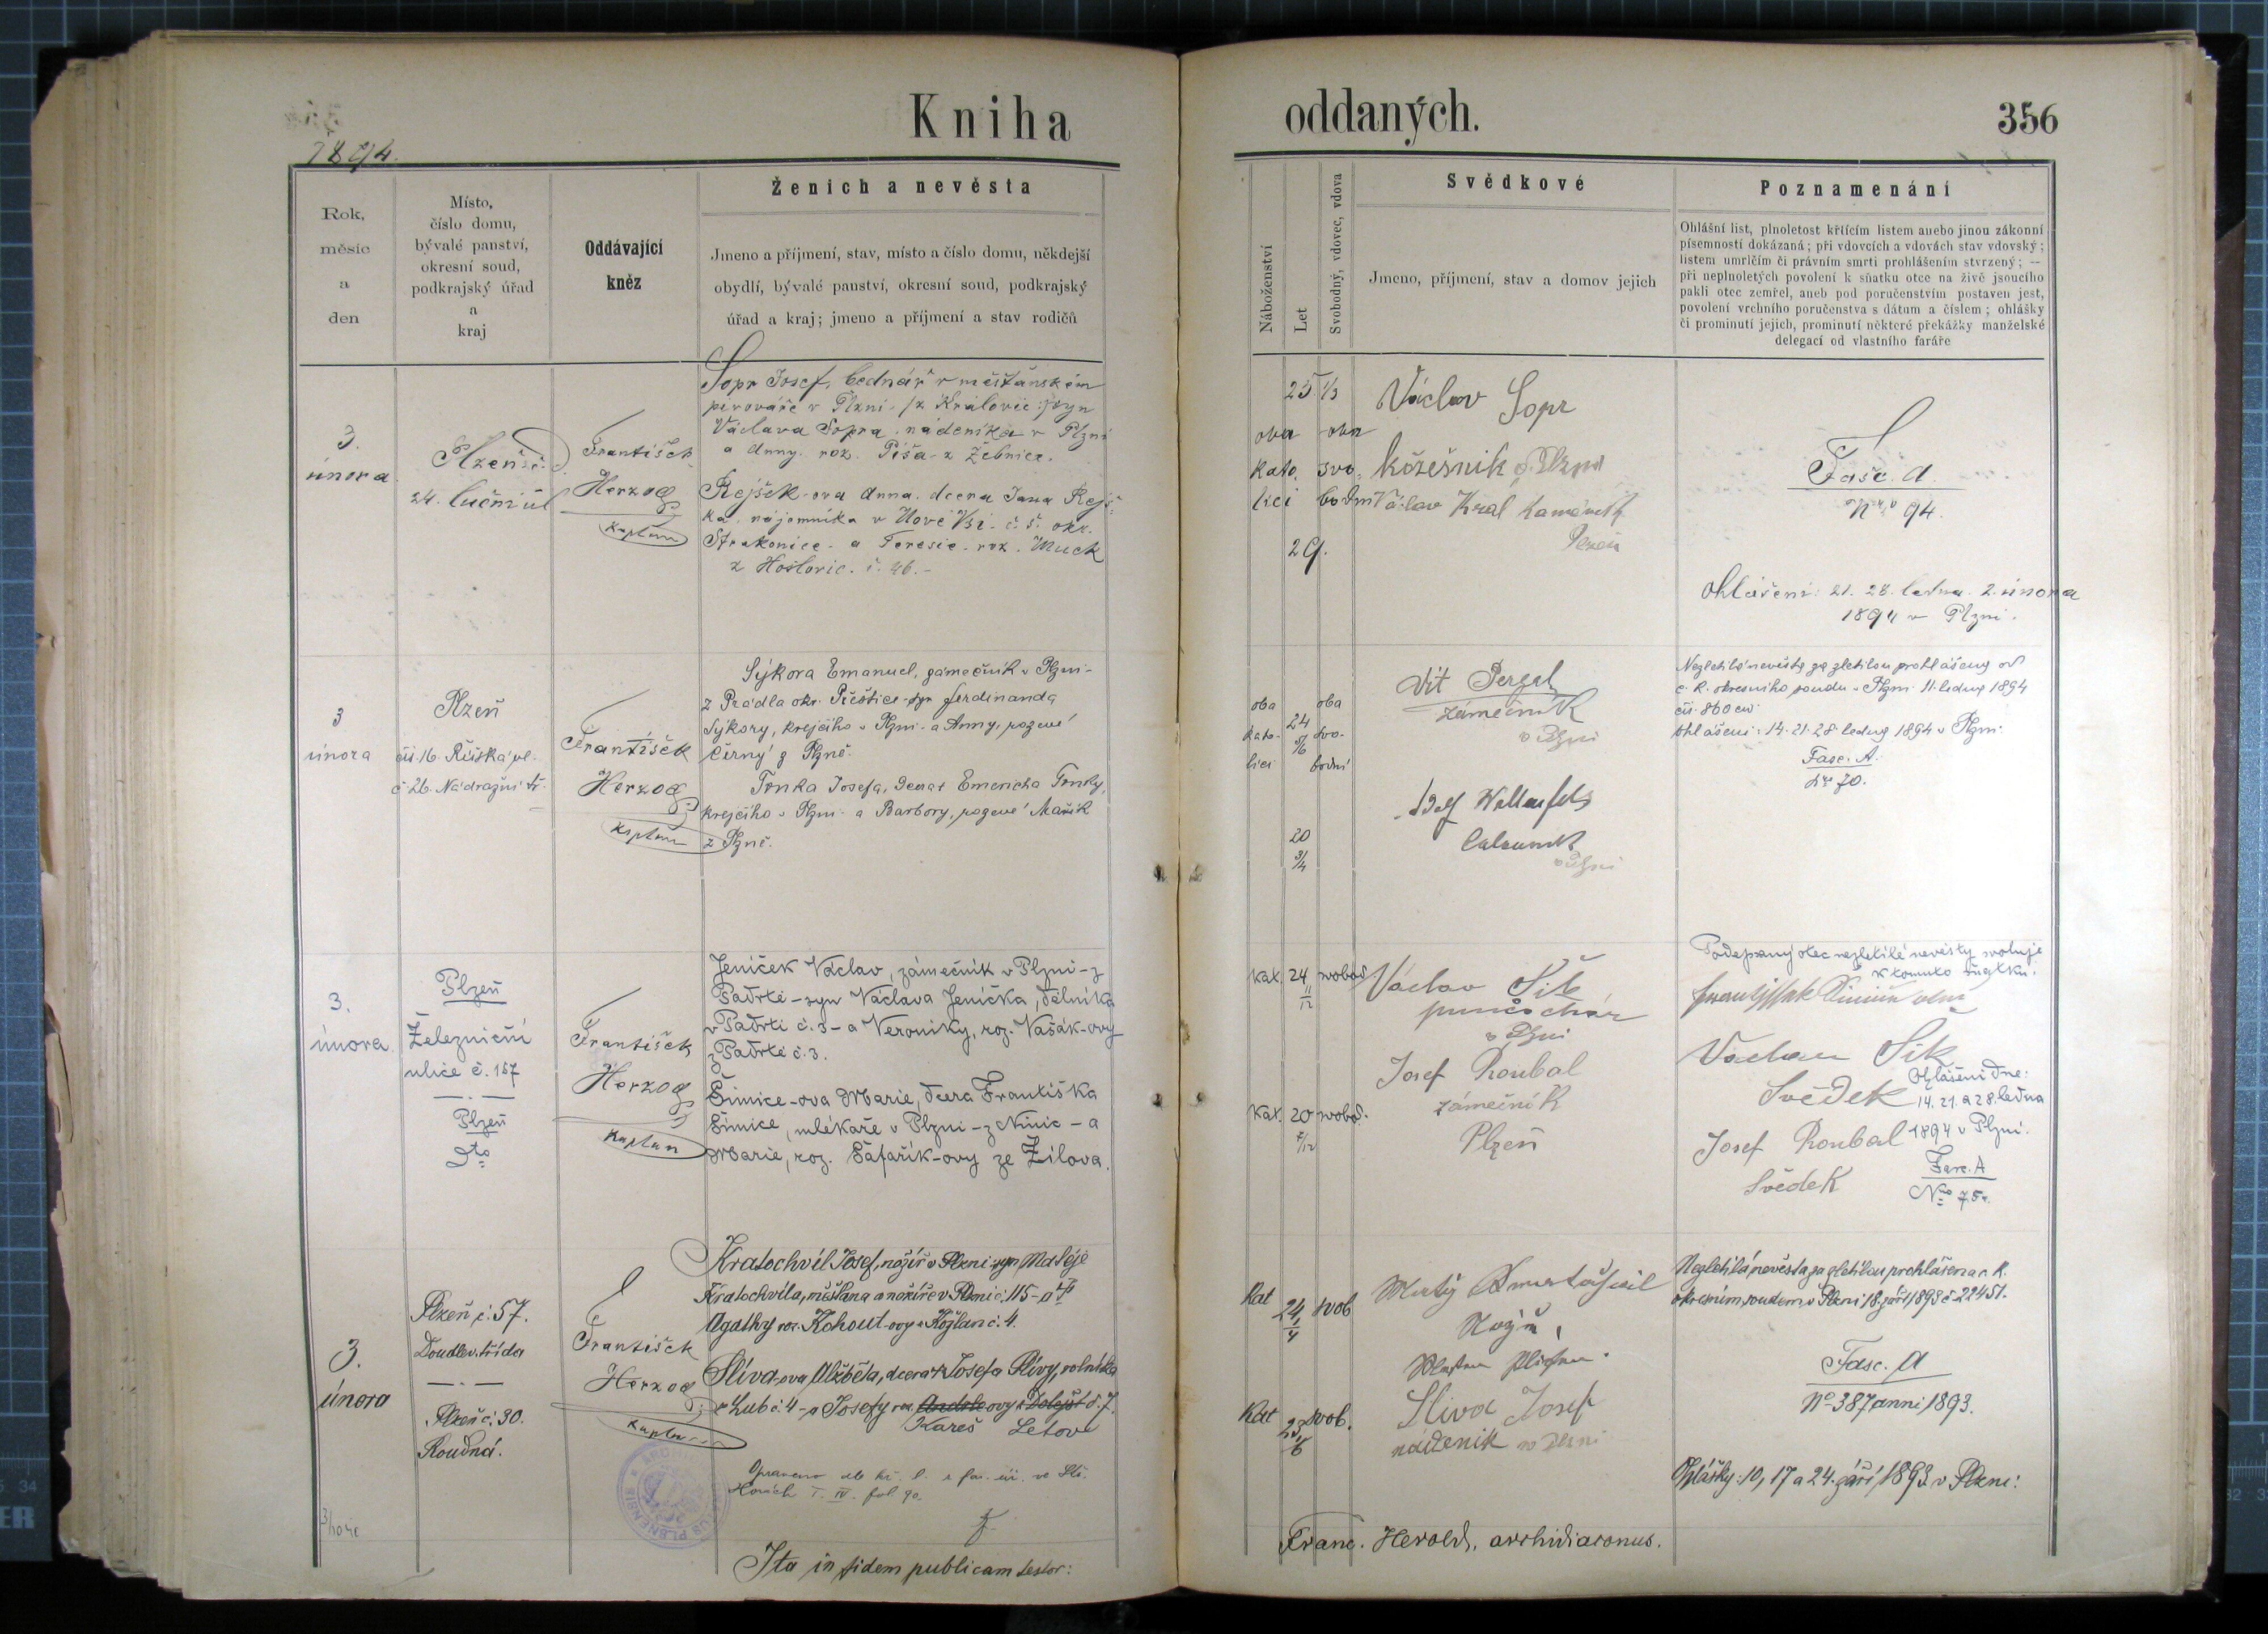 Kniha
oddaných.
356
1894.
Rok,
měsíc
a
den
Místo,
číslo domu,
bývalé panství,
okresní soud,
podkrajský úřad
a
kraj
Oddávající
kněz
Ženich a nevěsta
Jmeno a příjmení, stav, místo a číslo domu, někdejší
obydlí, bývalé panství, okresní soud, podkrajský
úřad a kraj; jmeno a příjmení a stav rodičů
Náboženství
Let
Svobodný, vdovec, vdova
Svědkové
Jmeno, příjmení, stav a domov jejich
Poznamenání
Ohlášní list, plnoletost křticím listem anebo jinou zákonní
písemností dokázaná; při vdovcích a vdovách stav vdovský;
listem umrlčím či právním smrti prohlášením stvrzený; —
při neplnoletých povolení k sňatku otce na živě jsoucího
pakli otec zemřel, aneb pod poručenstvím postaven jest,
povolení vrchního poručenstva s dátum a číslem; ohlášky
či prominutí jejich, prominutí některé překážky manželské
delegací od vlastního faráře
3.
února
Plzeň č.
24. luční ul
František
Herzog
kaplan
Sopr Josef, bednář v měšťanském
pivováře v Plzni /z Kralovic:/ syn
Václava Sopra, nádeníka v Plzni
a Anny roz. Píša z Žebnice.
Rejšek-ova Anna, dcera Jana Rejš-
ka, nájemníka v Nové Vsi č. 5. okr.
Strakonice a Teresie roz. Muck
z Hoslovic. č. 46.-
25 1/3
oba oba
kato, svo,
lici bodni
29.
Václav Sopr
kožešník v Plzni
Václav Kral kameník
Plzeň
Fasc. A.
Nro 94.
Ohlášení: 21. 28. ledna. 2. února
1894 v Plzni.
3
února
Plzeň
čís. 16. Říšská ul.
č. 26. Nádražní tř.
František
Herzog
kaplan
Sýkora Emanuel, zámečník v Plzni-
z Prádla okr. Přeštice-syn Ferdinanda
Sýkory, krejčího v Plzni a Anny, rozené
Černý z Plzně.
Tonka Josefa, dcera Emericha Tonky,
krejčího v Plzni a Barbory, rozené Mařík
z Plzně.
oba oba
kato- 24 svo-
lici bodní
20
3/4
Vít Pergel
zámečník
v Plzni
v Plzni
Nezletilá nevěsta za zletilou prohlášena od
c. k. okresního soudu v Plzni 11. ledna 1894
čís. 860 civ.
Ohlášení: 14. 21. 28 ledna 1894 v Plzni.
Fasc. A.
Nro 70.
3.
února
Plzeň
Železniční
ulice č. 157
Plzeň
dto
František
Herzog
kaplan
Jeniček Václav, zámečník v Plzni-z
Padrtě-syn Václava Jenička, dělníka
v Padrti č. 3-a Veroniky, roz. Vašák-ovy
z Padrtě č. 3.
Šimice-ova Marie, dcera Františka
Šimice, mlékaře v Plzni-z Ninic-a
Marie, roz. Šafařík-ovy ze Žilova.
kat. 24 svobod.
1/12
kat. 20 svobod.
7/12
Václav Šik
punčochár
v Plzni
Josef Roubal
zámečník
Plzeň
Podepsaný otec nezletilé nevěsty svoluje
k tomuto sňatku.
Václav Šik
Svědek
Ohlášení dne:
14. 21. a 28. ledna
1894 v Plzni.
Josef Roubal
Svědek
Fasc. A
Nro 75.
3.
února
Plzeň č. 57.
Doudlev. třída
Plzeň č. 30.
Roudná.
František
Herzog
kaplan
Kratochvíl Josef, nožíř v Plzni-syn Matěje
Kratochvíla, měšťana a nožíře v Plzni č. 115-a †
Agathy roz. Kohout-ovy z Kožlan č. 4.
Slíva-ova Alžběta, dcera † Josefa Slívy, rolníka
z Lub č. 4-a Josefy roz. ovy z Dolejší č. 7.
Kareš Letové
Opraveno dle kř. l. z far. úř. ve Sti.
Horách T. IV. fol. 90.
Kat 24 svob
1/4
Kat 23 svob.
1/6
Slíva Josef
nádeník v Plzni
Nezletilá nevěsta za zletilou prohlášena c. k.
okresním soudem v Plzni 18. září 1893 č. 22451.
Fasc. A
No 387 anni 1893.
Ohlášky: 10, 17 a 24. září 1893 v Plzni:
Ita in fidem publicam testor:
Franc. Herold, archidiaconus.